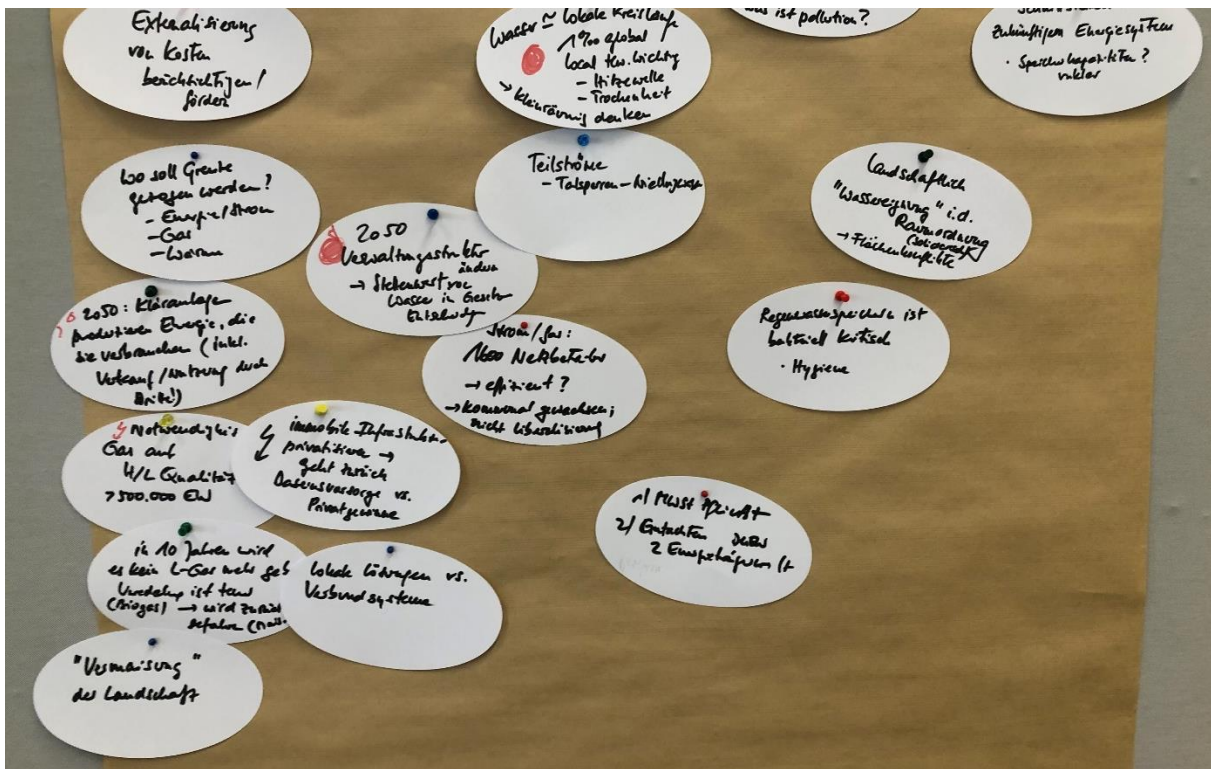 Externalisierung
von Kosten
berücksichtigen /
fördern
Wasser ≈ lokale Kreisläufe
1‰ global
local wichtig
- Hitzewelle
- Trockenheit
→ kleinräumig denken
ist pollution?
Zukünftigem Energiesystem
· Speicherkapazitäten?
unklar
Wo soll Grenze
gezogen werden?
- Energie/Strom
- Gas
- Wärme
Teilströme
- Talsperren - Niedrigwasser
Landschaftlich
"Wassereignung" i.d.
Raumordnung
→ Flächenkonflikte
2050
Verwaltungsstruktur
ändern
→ Stellenwert von
Wasser in Gesetz
2050: Kläranlagen
produzieren Energie, die
sie verbrauchen (inkl.
Verkauf/Nutzung durch
Dritte!)
Strom/Gas:
1600 Netzbetreiber
→ effizient?
→ kommunal gewachsen;
nicht Liberalisierung
Regenwasserspeichern ist
bakteriell kritisch
· Hygiene
Notwendigkeit
Gas auf
H/L Qualität
> 500.000 EW
immobile Infrastruktur
privatisieren →
geht zurück
Daseinsvorsorge vs.
Privatgewinne
1) MwSt
2) Gutachten
2 Energieträgern
in 10 Jahren wird
es kein L-Gas mehr geb
Veredelung ist teuer
(Biogas) → wird zurück
gefahren (Mais
Lokale Lösungen vs.
Verbundsysteme
"Vermaisung"
der Landschaft